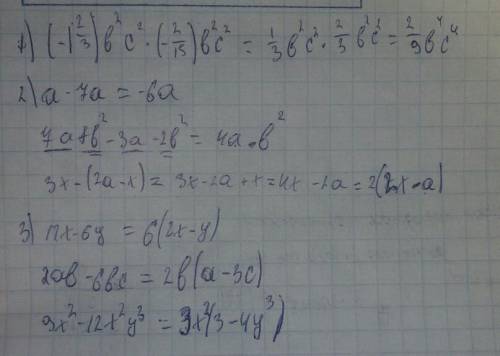 1) (-1 2/3) b²c² · (-2/15) b²c² = 1/3 b²c² · 2/3 b²c² = 2/9 b⁴c⁴
2) a - 7a = -6a
7a + b² - 3a - 2b² = 4a - b²
3x - (2a - x) = 3x - 2a + x = 4x - 2a = 2(2x - a)
3) 12x - 6y = 6(2x - y)
2ab - 6bc = 2b(a - 3c)
9x² - 12x²y³ = 3x²(3 - 4y³)